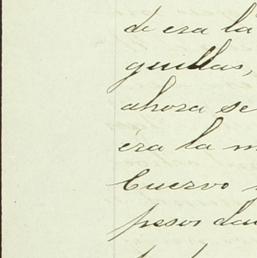 de era la
guillas,
ahora se
era la m
Cuervo
pesos dan